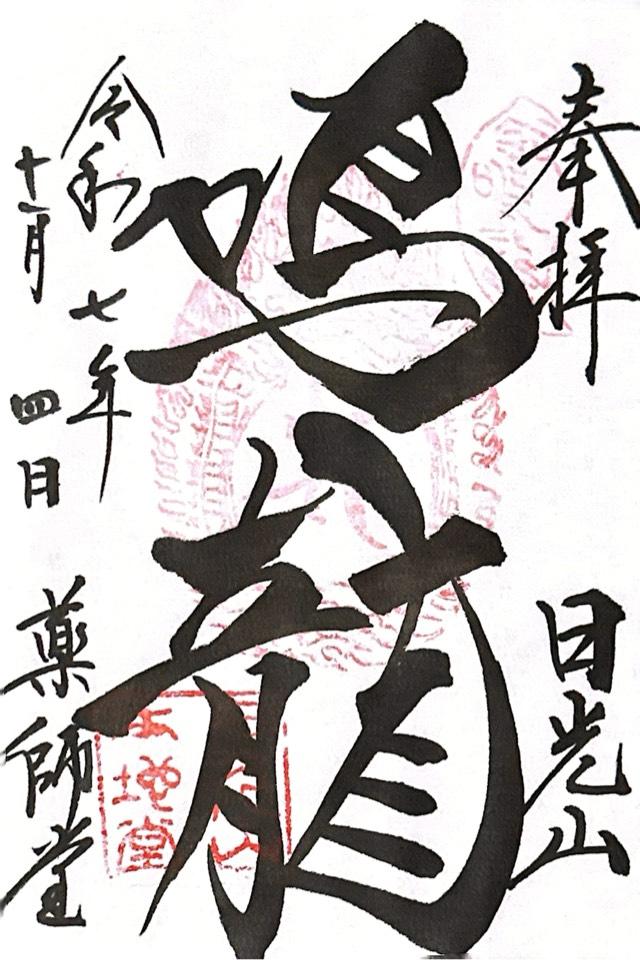 奉拝
日光山
鳴龍
令和七年
十一月四日
薬師堂
本地堂